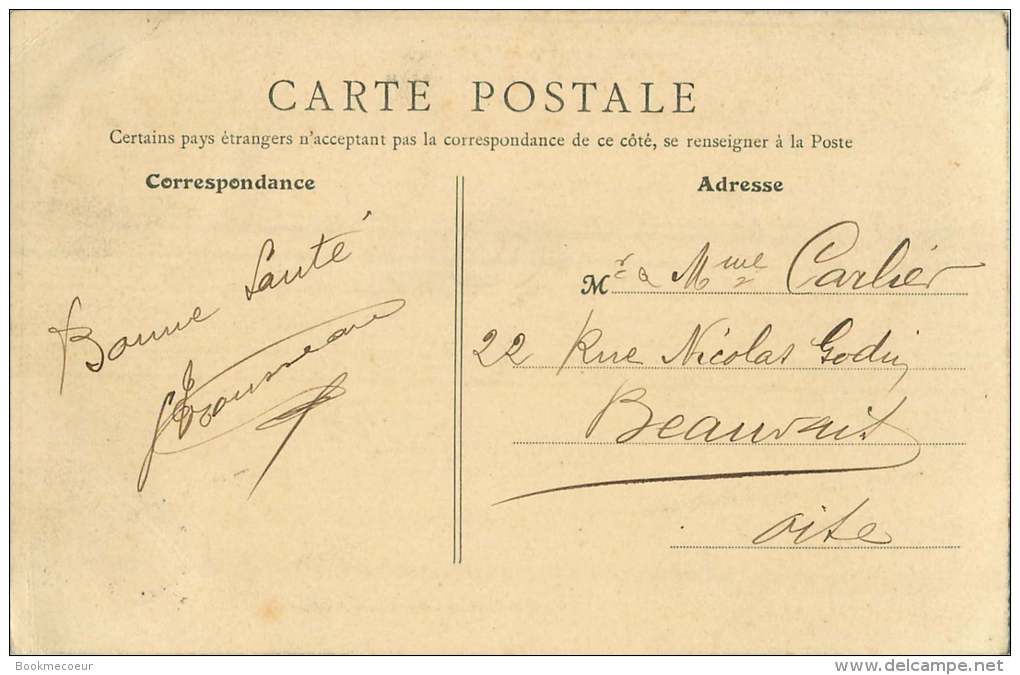 CARTE POSTALE
Certains pays étrangers n'acceptant pas la correspondance de ce côté, se renseigner à la Poste
Correspondance
Bonne Santé
Adresse
Mr & Mme Carlier
22 Rue Nicolas Godin
Beauvais
Oise
Bookmecoeur
www.delcampe.net